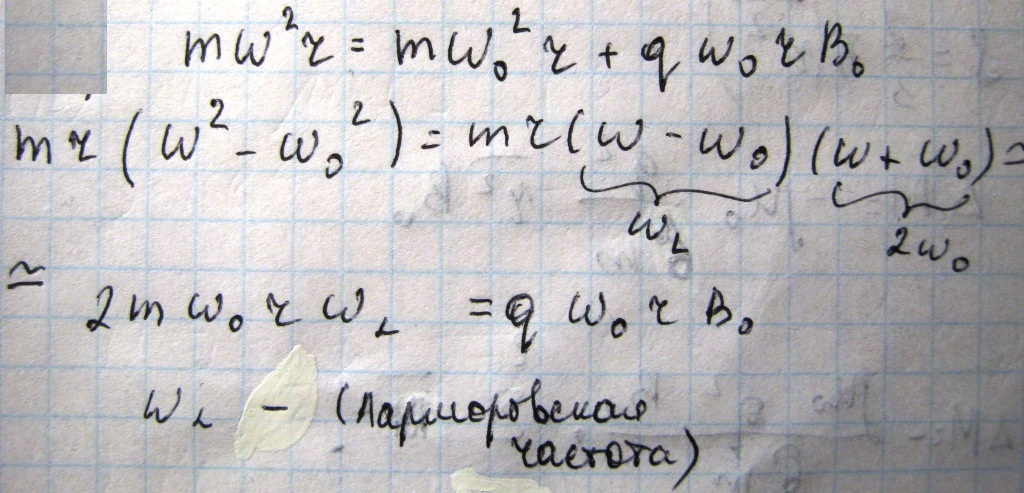 mω²r = mω₀²r + qω₀rB₀
mr(ω² - ω₀²) = mr(ω - ω₀)(ω + ω₀) =
ω_L 2ω₀
≃
2mω₀rω_L = qω₀rB₀
ω_L - (Лармеровская
частота)